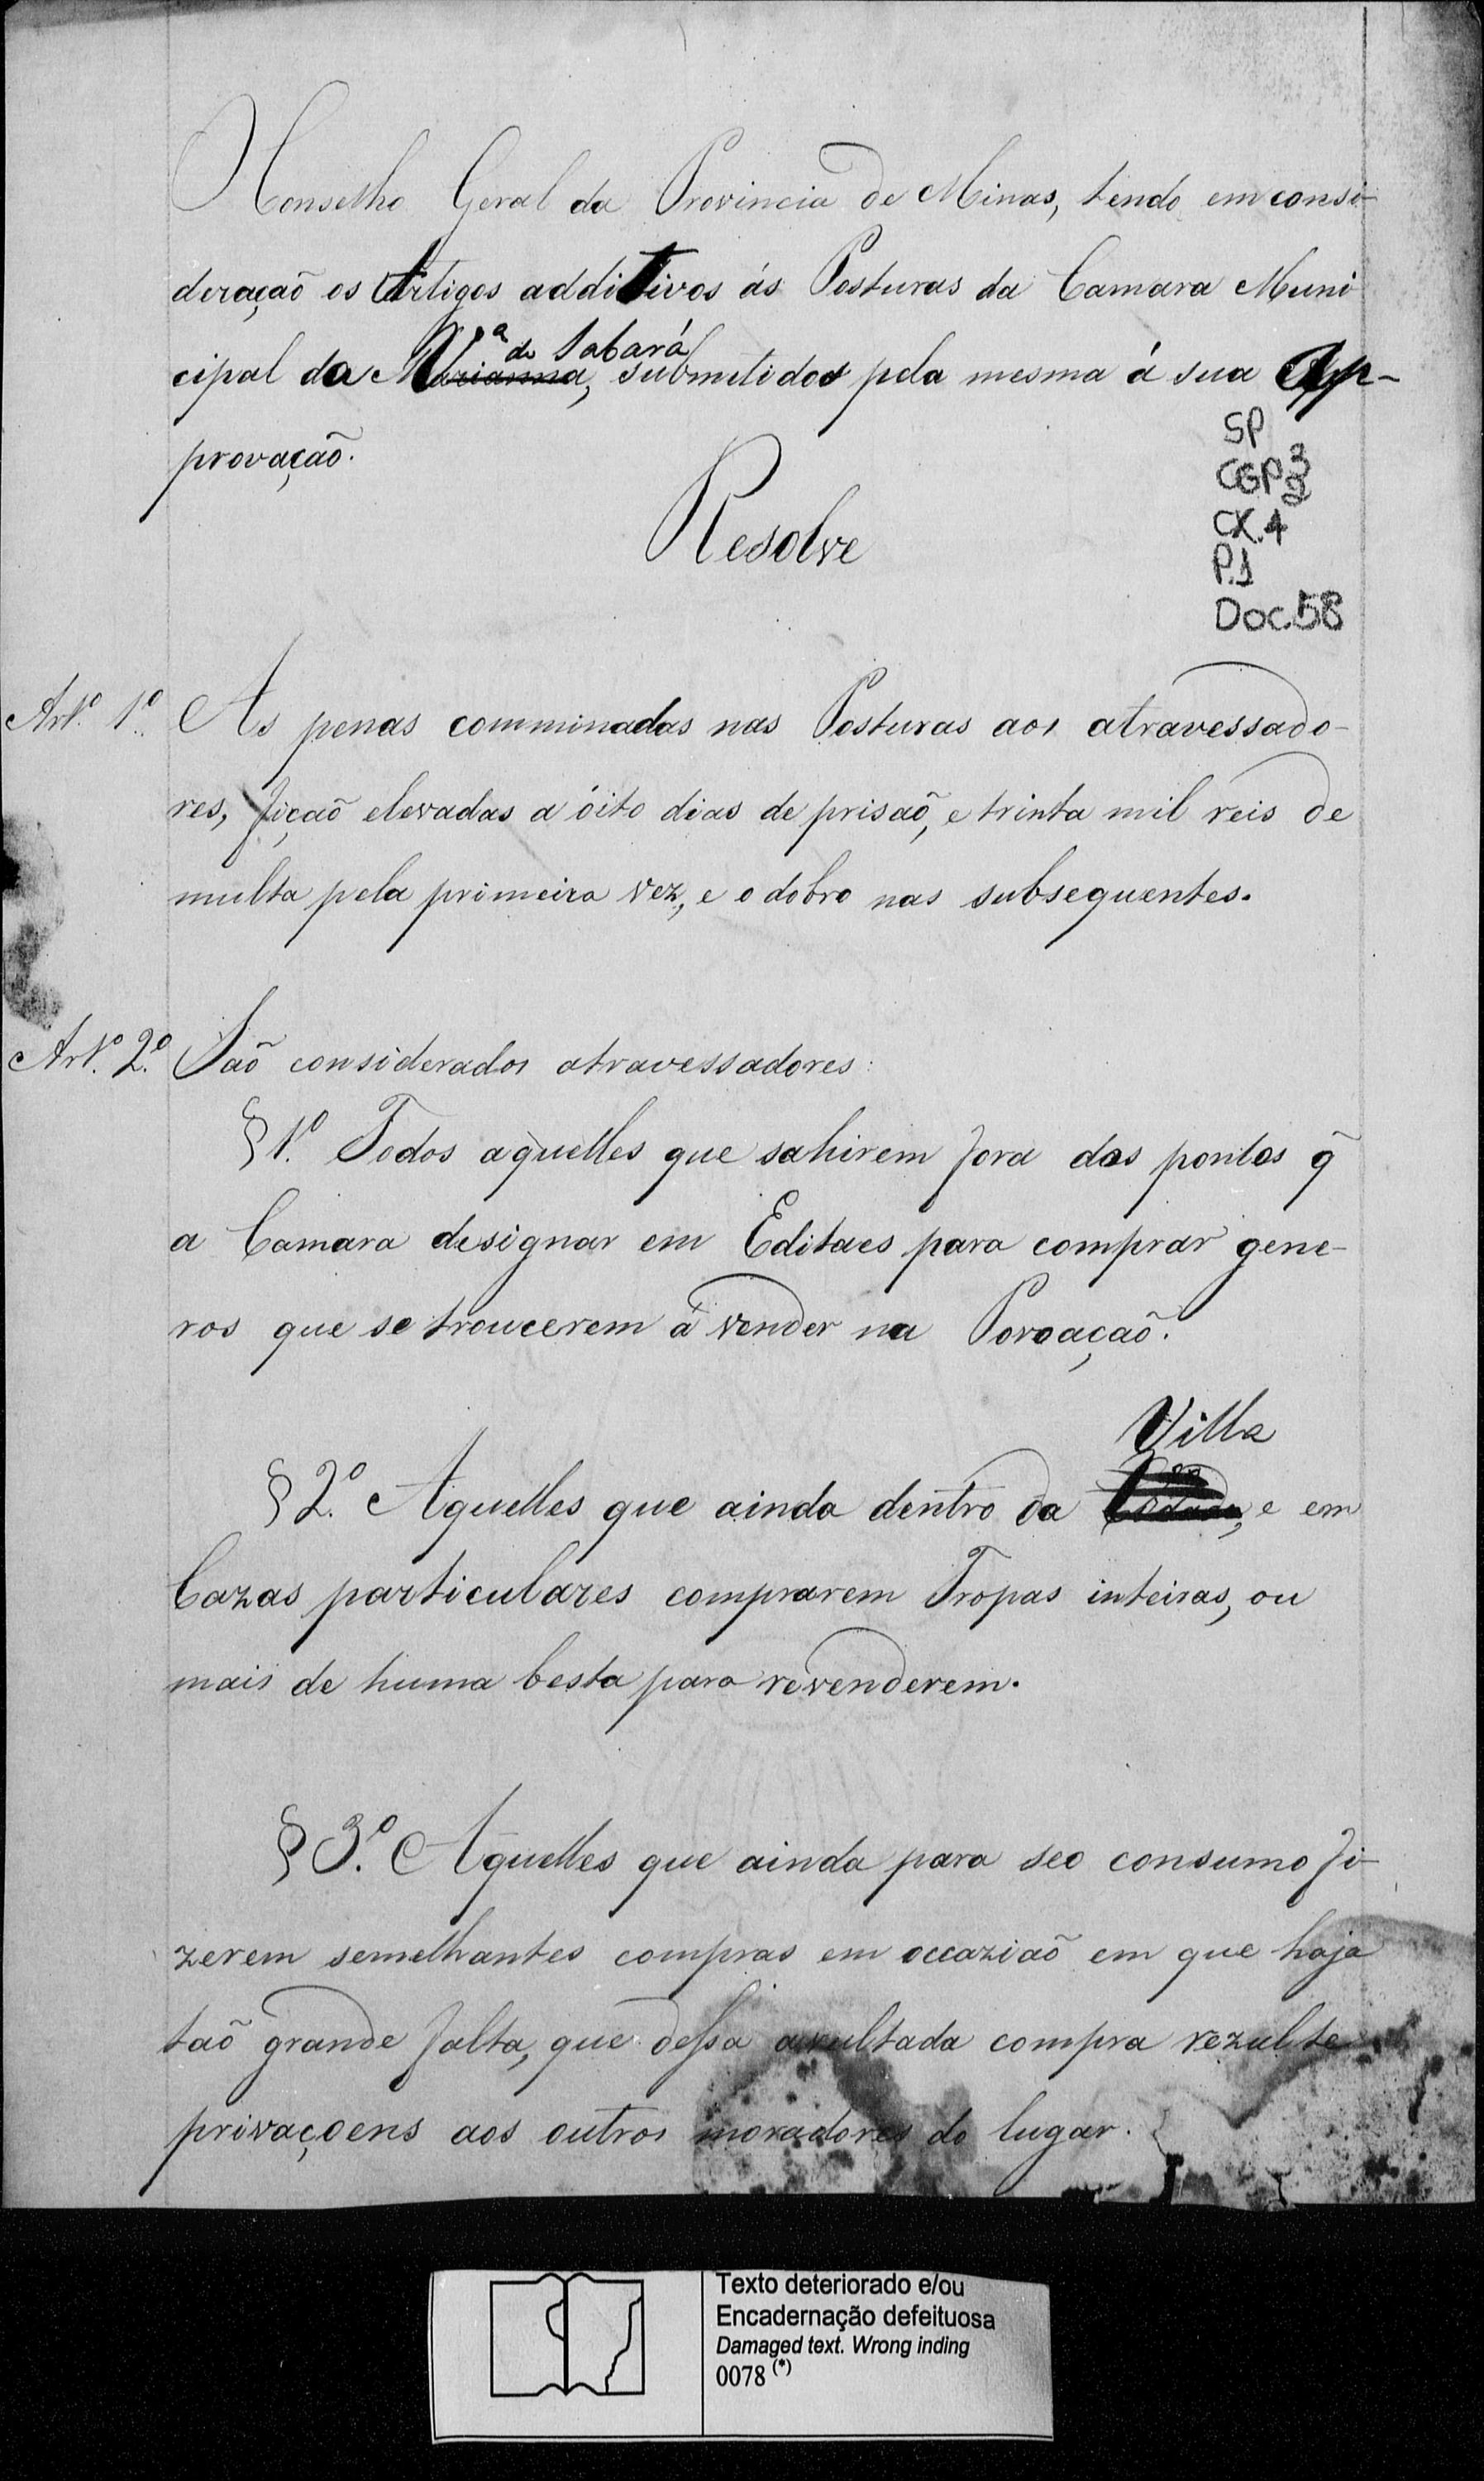 O Conselho Geral da Provincia de Minas, tendo em consi-
deração os Artigos addiTivos ás Posturas da Camara Muni
cipal da V.ª de Sabará Marianna, submetidos pela mesma á sua Ap-
provação.
SP
CGP 3
CX.4
P.1
Doc.58
Resolve
Art.º 1º As penas comminadas nas Posturas aos atravessado-
res, ficaõ elevadas a óito dias de prisaõ, e trinta mil reis de
multa pela primeira vez, e o dobro nas subsequentes.
Art.º 2º Saõ considerados atravessadores:
§ 1.º Todos aquelles que sahirem fora dos pontos q̃
a Camara designar em Editaes para comprar gene-
ros que se troucerem á vender na Povoaçaõ.
Villa
§ 2.º Aquelles que ainda dentro da Cidade, e em
Cazas particulares comprarem Tropas inteiras, ou
mais de huma besta para revenderem.
§ 3.º Aquelles que ainda para seo consumo fi-
zerem semelhantes compras em occaziaõ em que haja
taõ grande falta, que dessa avultada compra rezulte
privaçoens aos outros moradores do lugar.
Texto deteriorado e/ou
Encadernação defeituosa
Damaged text. Wrong inding
0078 (*)